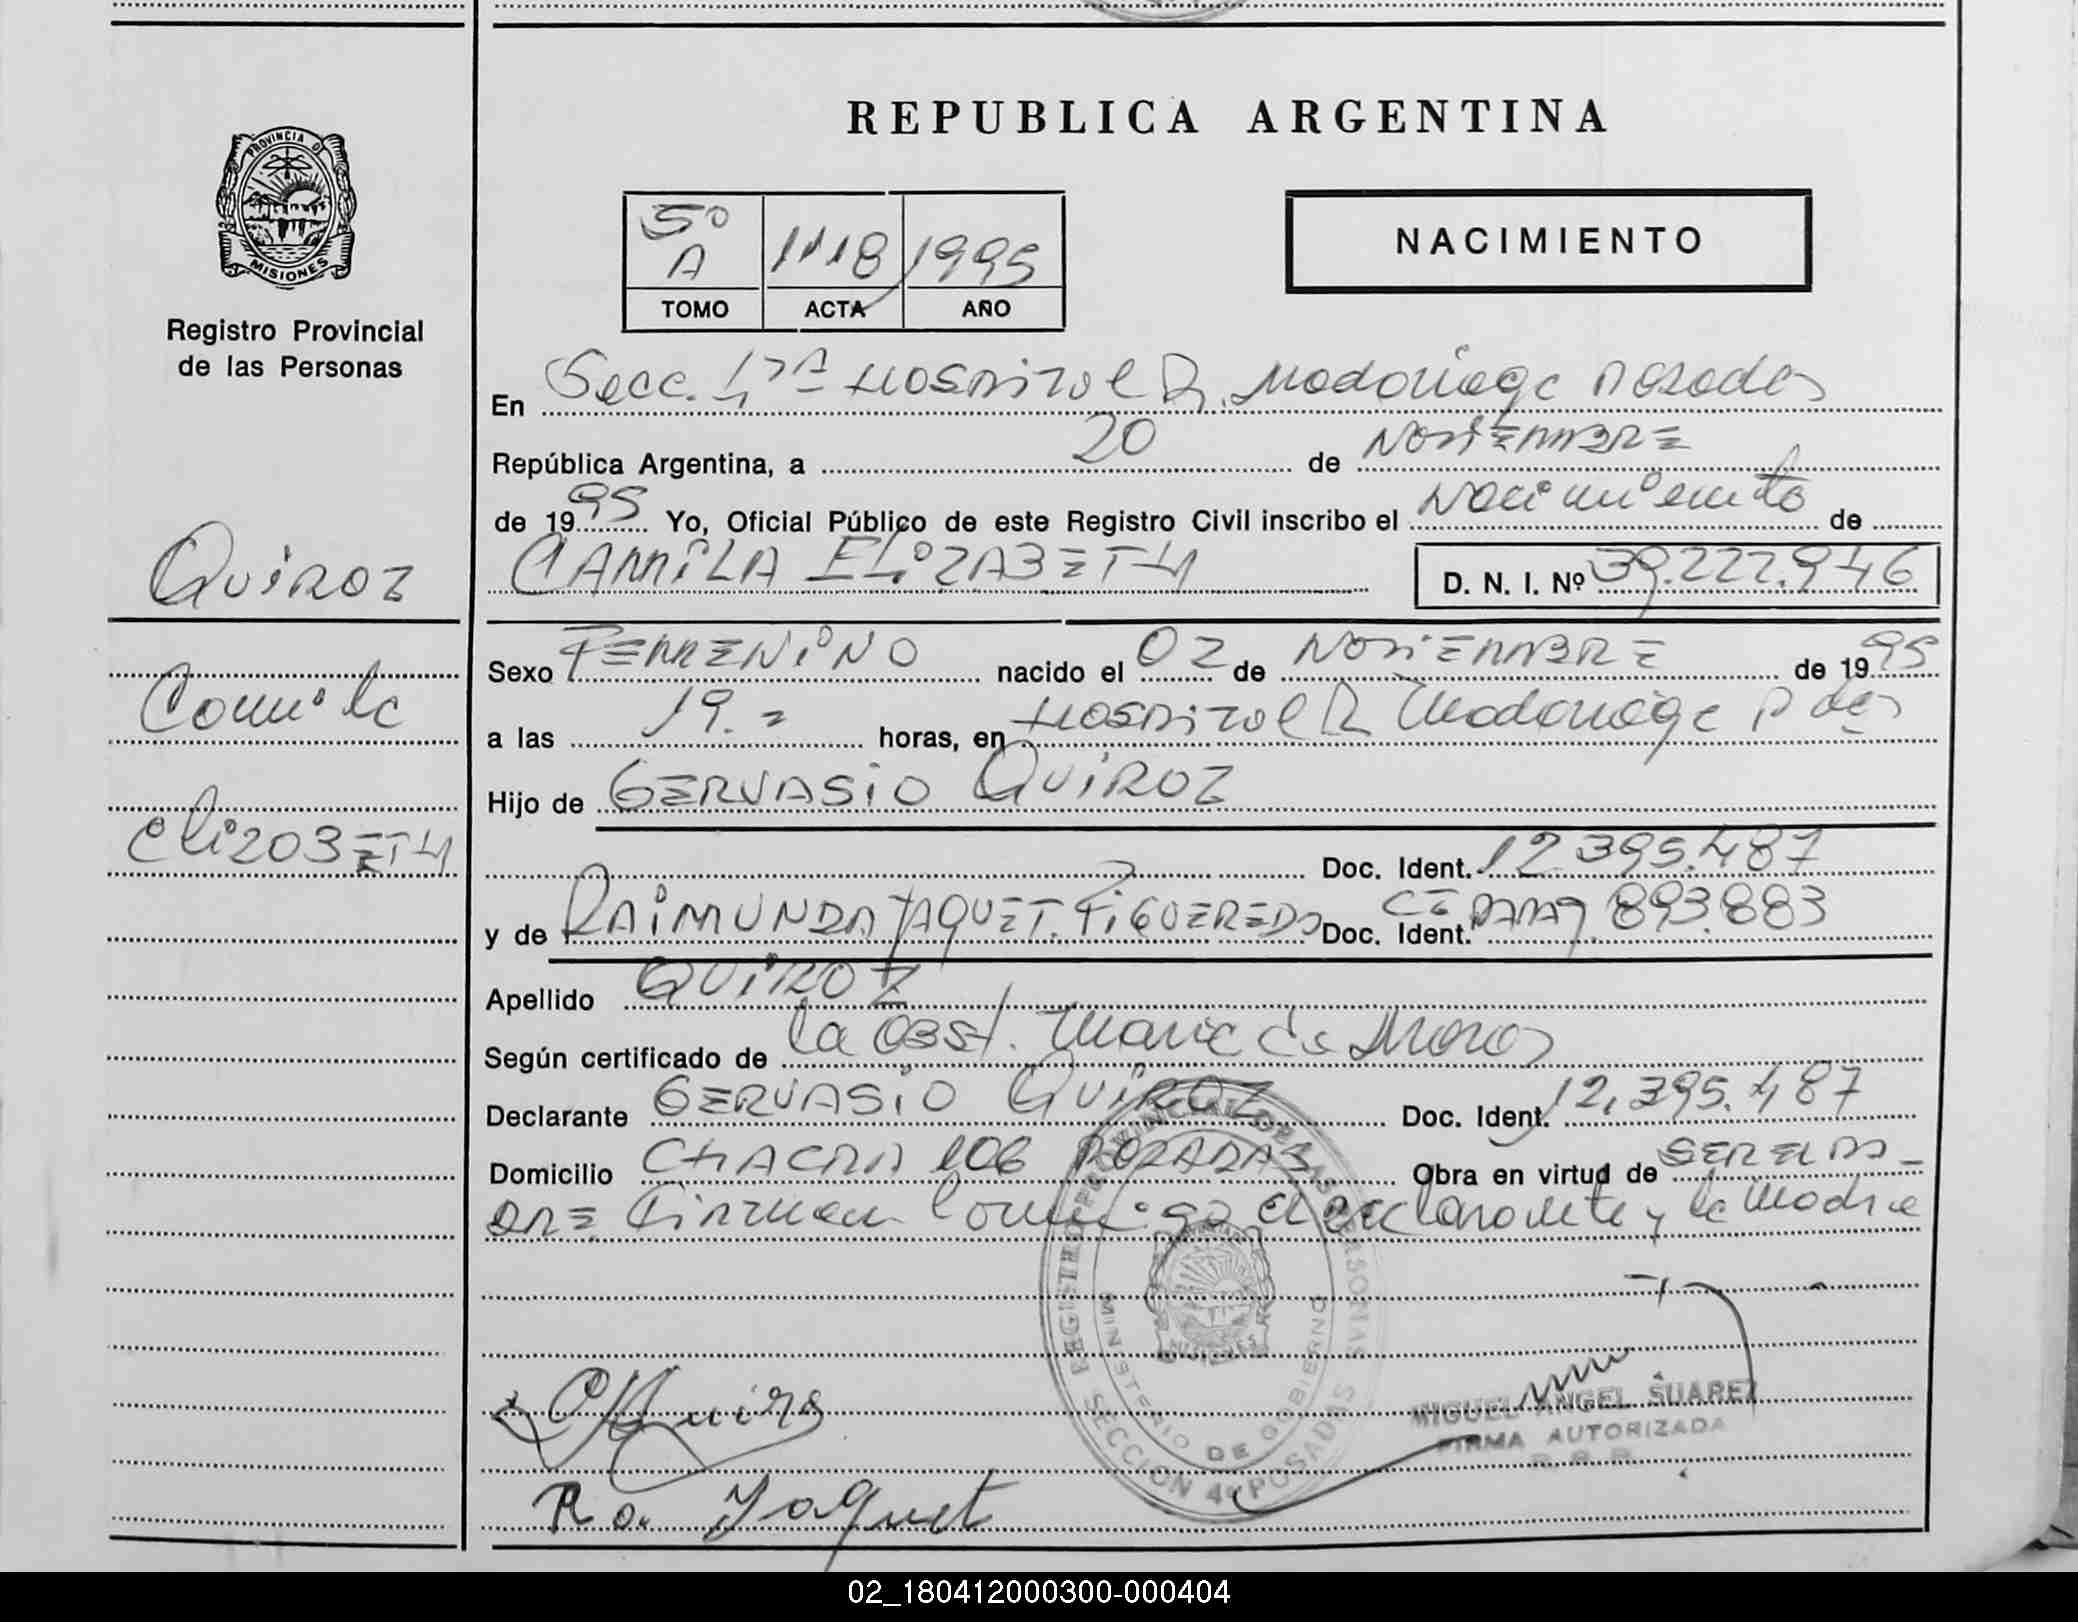 REPUBLICA ARGENTINA
PROVINCIA DE
MISIONES
Registro Provincial
de las Personas
5º A 1118 1995
TOMO ACTA AÑO
NACIMIENTO
En Secc. Hospital R. Madariaga Posadas
República Argentina, a 20 de NOVIEMBRE
de 1995 Yo, Oficial Público de este Registro Civil inscribo el Nacimiento de
CAMILA ELIZABETH D. N. I. Nº 39.222.946
Quiroz
Camila
Elizabeth
Sexo FEMENINO nacido el 02 de NOVIEMBRE de 1995
a las 19.= horas, en Hospital R Madariaga Pdas
Hijo de GERVASIO QUIROZ
Doc. Ident. 12.395.487
y de RAIMUNDA YAQUET. FIGUEREDO Doc. Ident. 893.883
Apellido QUIROZ
Según certificado de la Obst. Maria de
Declarante GERVASIO QUIROZ Doc. Ident. 12.395.487
Domicilio CHACRA 106 POSADAS Obra en virtud de SER EL PA-
DRE Firman Conmigo el declarante y la Madre
REGISTRO PROVINCIAL DE LAS PERSONAS
MINISTERIO DE GOBIERNO
MISIONES
SECCION 4º POSADAS
MIGUEL ANGEL SUAREZ
FIRMA AUTORIZADA
Ra. Yaquet
02_180412000300-000404